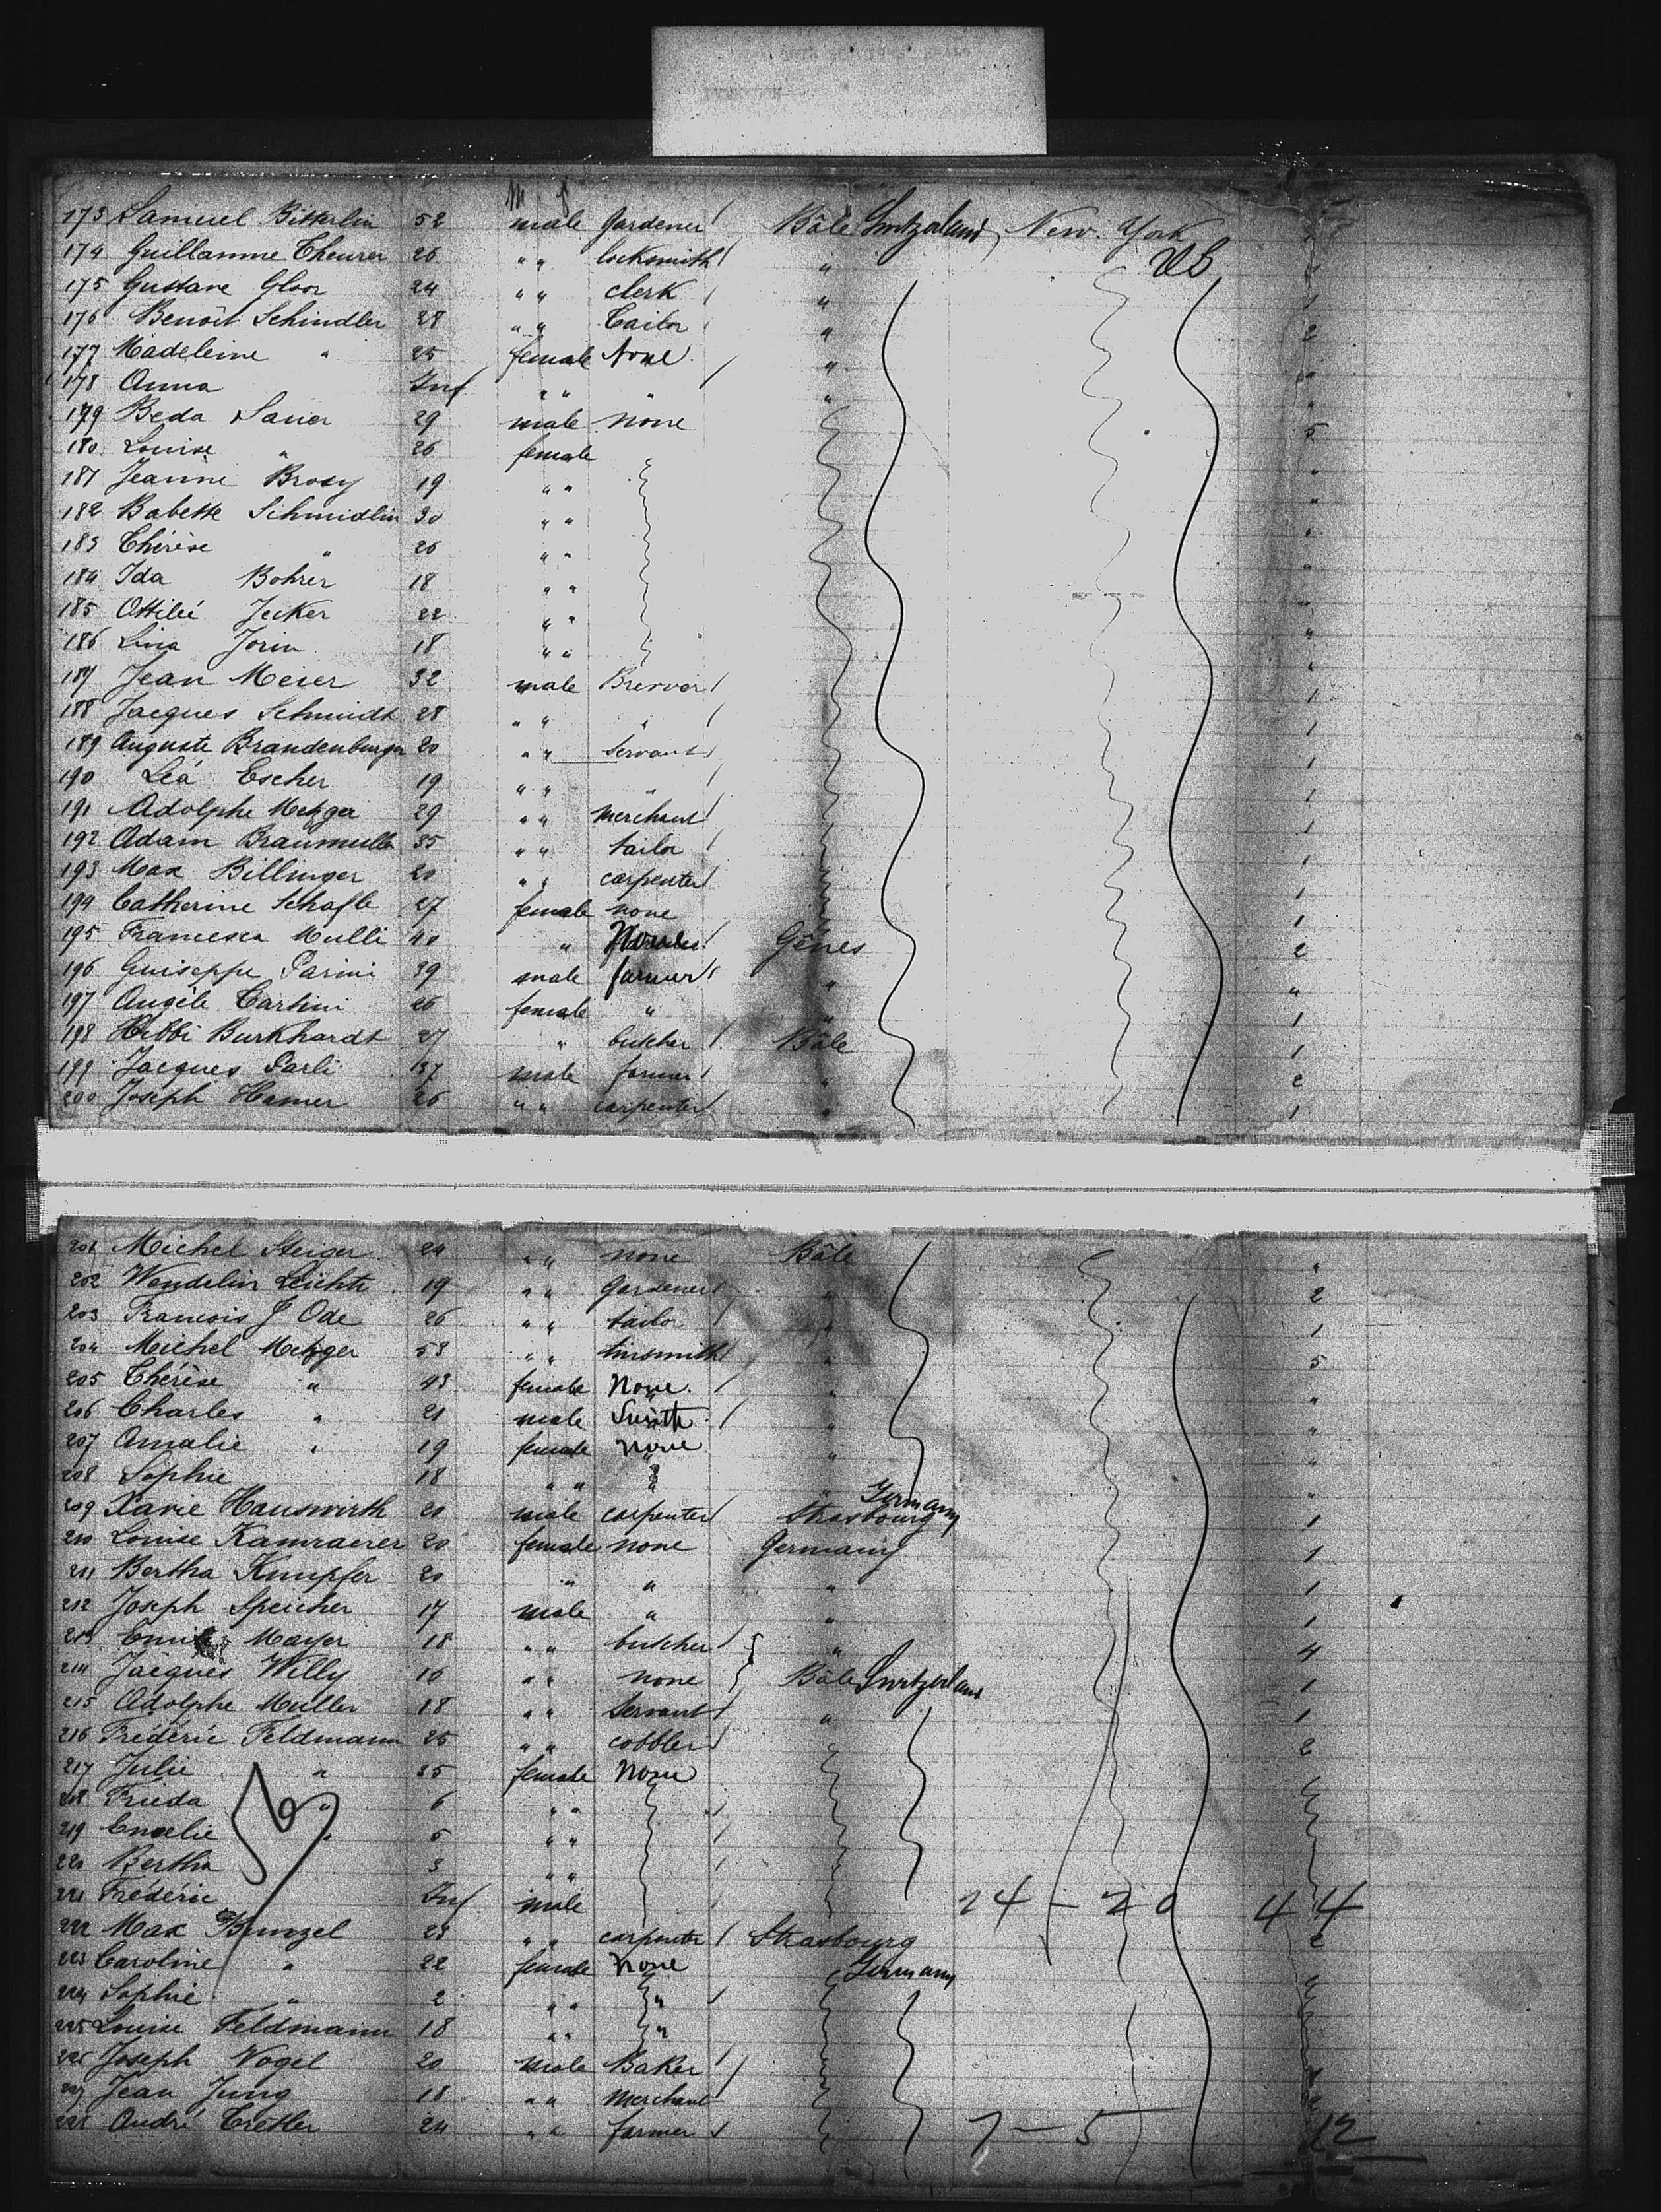 m f
173 Samuel Bitterlin 52 male Gardener Bâle Switzerland, New. York "
174 Guillaume Theurer 26 " " locksmith " US 1
175 Gustave Gloor 24 " " clerk " 1
176 Benoît Schindler 28 " " Tailor " 2
177 Madeleine " 25 female None "
178 Anna Inf " " " " "
179 Beda Sauer 29 male none 5
180 Louise " 26 female " "
181 Jeanne Brosy 19 " " "
182 Babette Schmidlin 30 " " "
183 Thérèse " 26 " " "
184 Ida Bohrer 18 " " "
185 Ottilié Jecker 22 " " "
186 Lina Jorin 18 " " "
187 Jean Meier 32 male Brewer 1
188 Jacques Schmidt 28 " " " 1
189 Auguste Brandenburger 20 " " Servant 1
190 Léa Escher 19 " " " 1
191 Adolphe Metzger 29 " " merchant 1
192 Adam Braumuller 35 " " tailor 1
193 Max Billinger 20 " " carpenter 1
194 Catherine Schafle 27 female none 1
195 Francesca Mulli 40 " Gênes 2
196 Guiseppe Parini 39 male farmer " "
197 Angèle Tartini 26 female " " 1
198 Hibbi Burkhardt 27 " butcher Bâle 1
199 Jacques Parli 37 male farmer " 2
200 Joseph Hamer 26 " " carpenter " 1
201 Michel Steiger 24 " " none Bâle "
202 Wendelin Leichte 19 " " Gardener " 2
203 Francois J Ode 26 " " tailor " 1
204 Michel Metzger 53 " " tinsmith " 5
205 Thérèse " 43 female None. " "
206 Charles " 21 male Smith " "
207 Amalie " 19 female none " "
208 Sophie 18 " " " " "
209 Xavie Hauswirth 20 male carpenter Strasbourg Germany 1
210 Louise Kamraerer 20 female none Germany 1
211 Bertha Knupfer 20 " " " 1
212 Joseph Speicher 17 male " " 1
213 Mayer 18 " " butcher " 4
214 Jacques Willy 16 " " none Bâle Switzerland 1
215 Adolphe Muller 18 " " Servant " 1
216 Frédéric Feldmann 25 " " cobbler 2
217 Julie " 25 female None
218 Frieda " 6 " "
219 Emelie " 5 " "
220 Bertha 3 " "
221 Frédéric Inf male 24 - 20 44
222 Max Bunzel 23 " " carpenter Strasbourg 2
223 Caroline " 22 female None Germany
224 Sophie " 2 " " "
225 Louise Feldmann 18 " " "
226 Joseph Vogel 20 male Baker
227 Jean Jung 18 " " Merchant
228 André Tretler 24 " " farmer 7 - 5 12